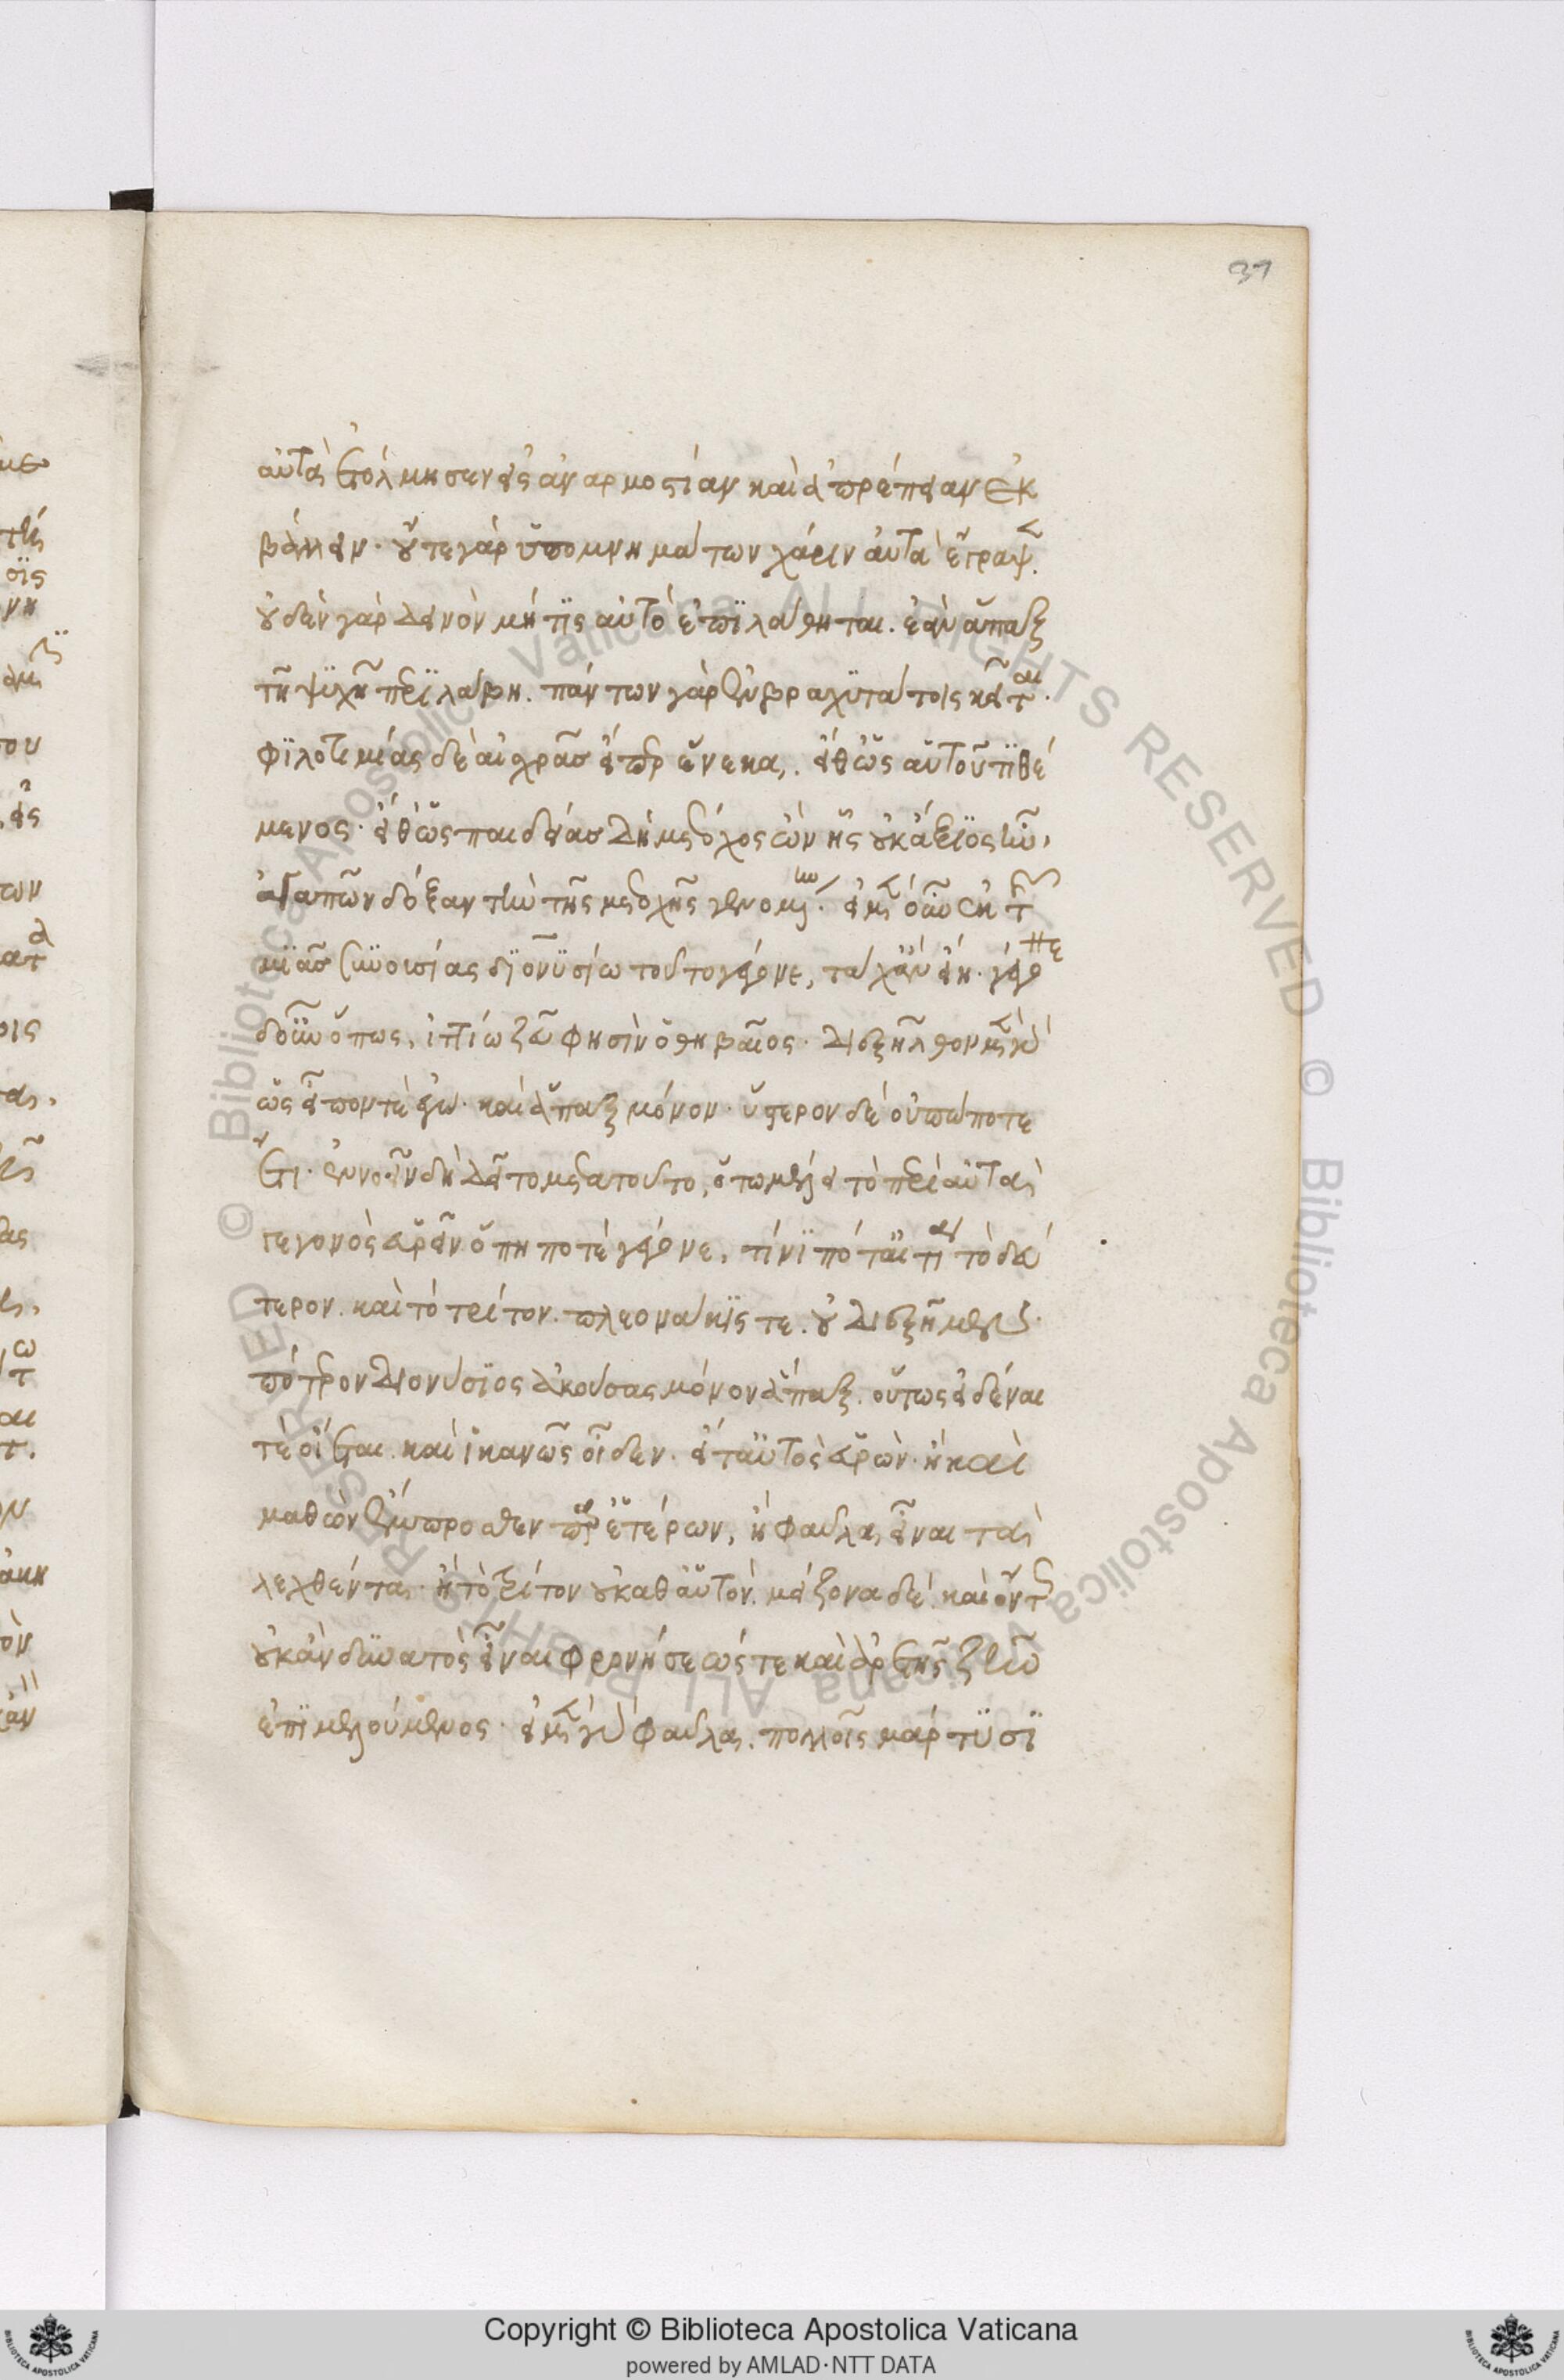 37
αὐτὰ ἐτόλμησεν εἰς ἀναρμοστίαν καὶ ἀπρέπειαν ἐκ
βάλλειν· οὔτε γὰρ ὑπομνημάτων χάριν αὐτὰ ἔγραψεν.
οὐδὲν γὰρ δεινὸν μή τϊς αὐτὸ ἐπϊλάθηται. ἐὰν ἅπαξ
τῆ ψϋχῆ περϊλάβη. πάντων γὰρ ἐν βραχϋτάτοις κεῖται.
φϊλοτιμίας δὲ αἰσχρᾶσ εἴπερ ἕνεκα. εἴθ' ὡς αὑτοῦ τϊθέ
μενος· εἴθ' ὡς παιδείασ δὴ μέτοχος ὢν ἧς οὐκ ἄξϊος ἦν,
ἀγαπῶν δόξαν τὴν τῆς μετοχῆς γενομένης. εἰ μὲν οὖν ἐκ τῆς
μϊᾶσ συνουσίας δϊονϋσίω τοῦτο γέγονε, τάχ' ἂν εἴη. γέγονε
δ' οὖν ὅπως, ἴττω ζεὺς φησὶν ὁ θηβαῖος. διεξῆλθον μὲν γὰρ
ὡς εἶπον τὲ ἐγὼ. καὶ ἅπαξ μόνον. ὕστερον δὲ οὐ πώποτε
ἔτι. ἐννοεῖν δὴ δεῖ τὸ μετὰ τοῦτο, ὅτω μέλει τὸ περὶ αὐτὰ
γεγονὸς εὑρεῖν ὅπη ποτὲ γέγονε, τίνϊ πότ' αἰτία τὸ δεύ
τερον καὶ τὸ τρίτον. πλεονάκϊς τε. οὐ διεξῆμεν.
πότερον διονύσϊος ἀκούσας μόνον ἅπαξ. οὕτως εἰδέναι
τὲ οἴεται. καὶ ἱκανῶς οἶδεν. εἴτ' αὐτὸς εὑρὼν. ἢ καὶ
μαθὼν ἔμπροσθεν παρ' ἑτέρων, ἢ φαῦλα εἶναι τὰ
λεχθέντα. ἢ τὸ τρίτον οὐ καθ' αὑτόν. μείζονα δέ. καὶ ὄντως
οὐκ ἂν δϋνατὸς εἶναι φρονήσεώς τε καὶ ἀρετῆς ζῆν
ἐπϊμελούμενος. εἰ μὲν γὰρ φαῦλα. πολλοῖς μάρτϋσϊ
Copyright © Biblioteca Apostolica Vaticana
powered by AMLAD·NTT DATA